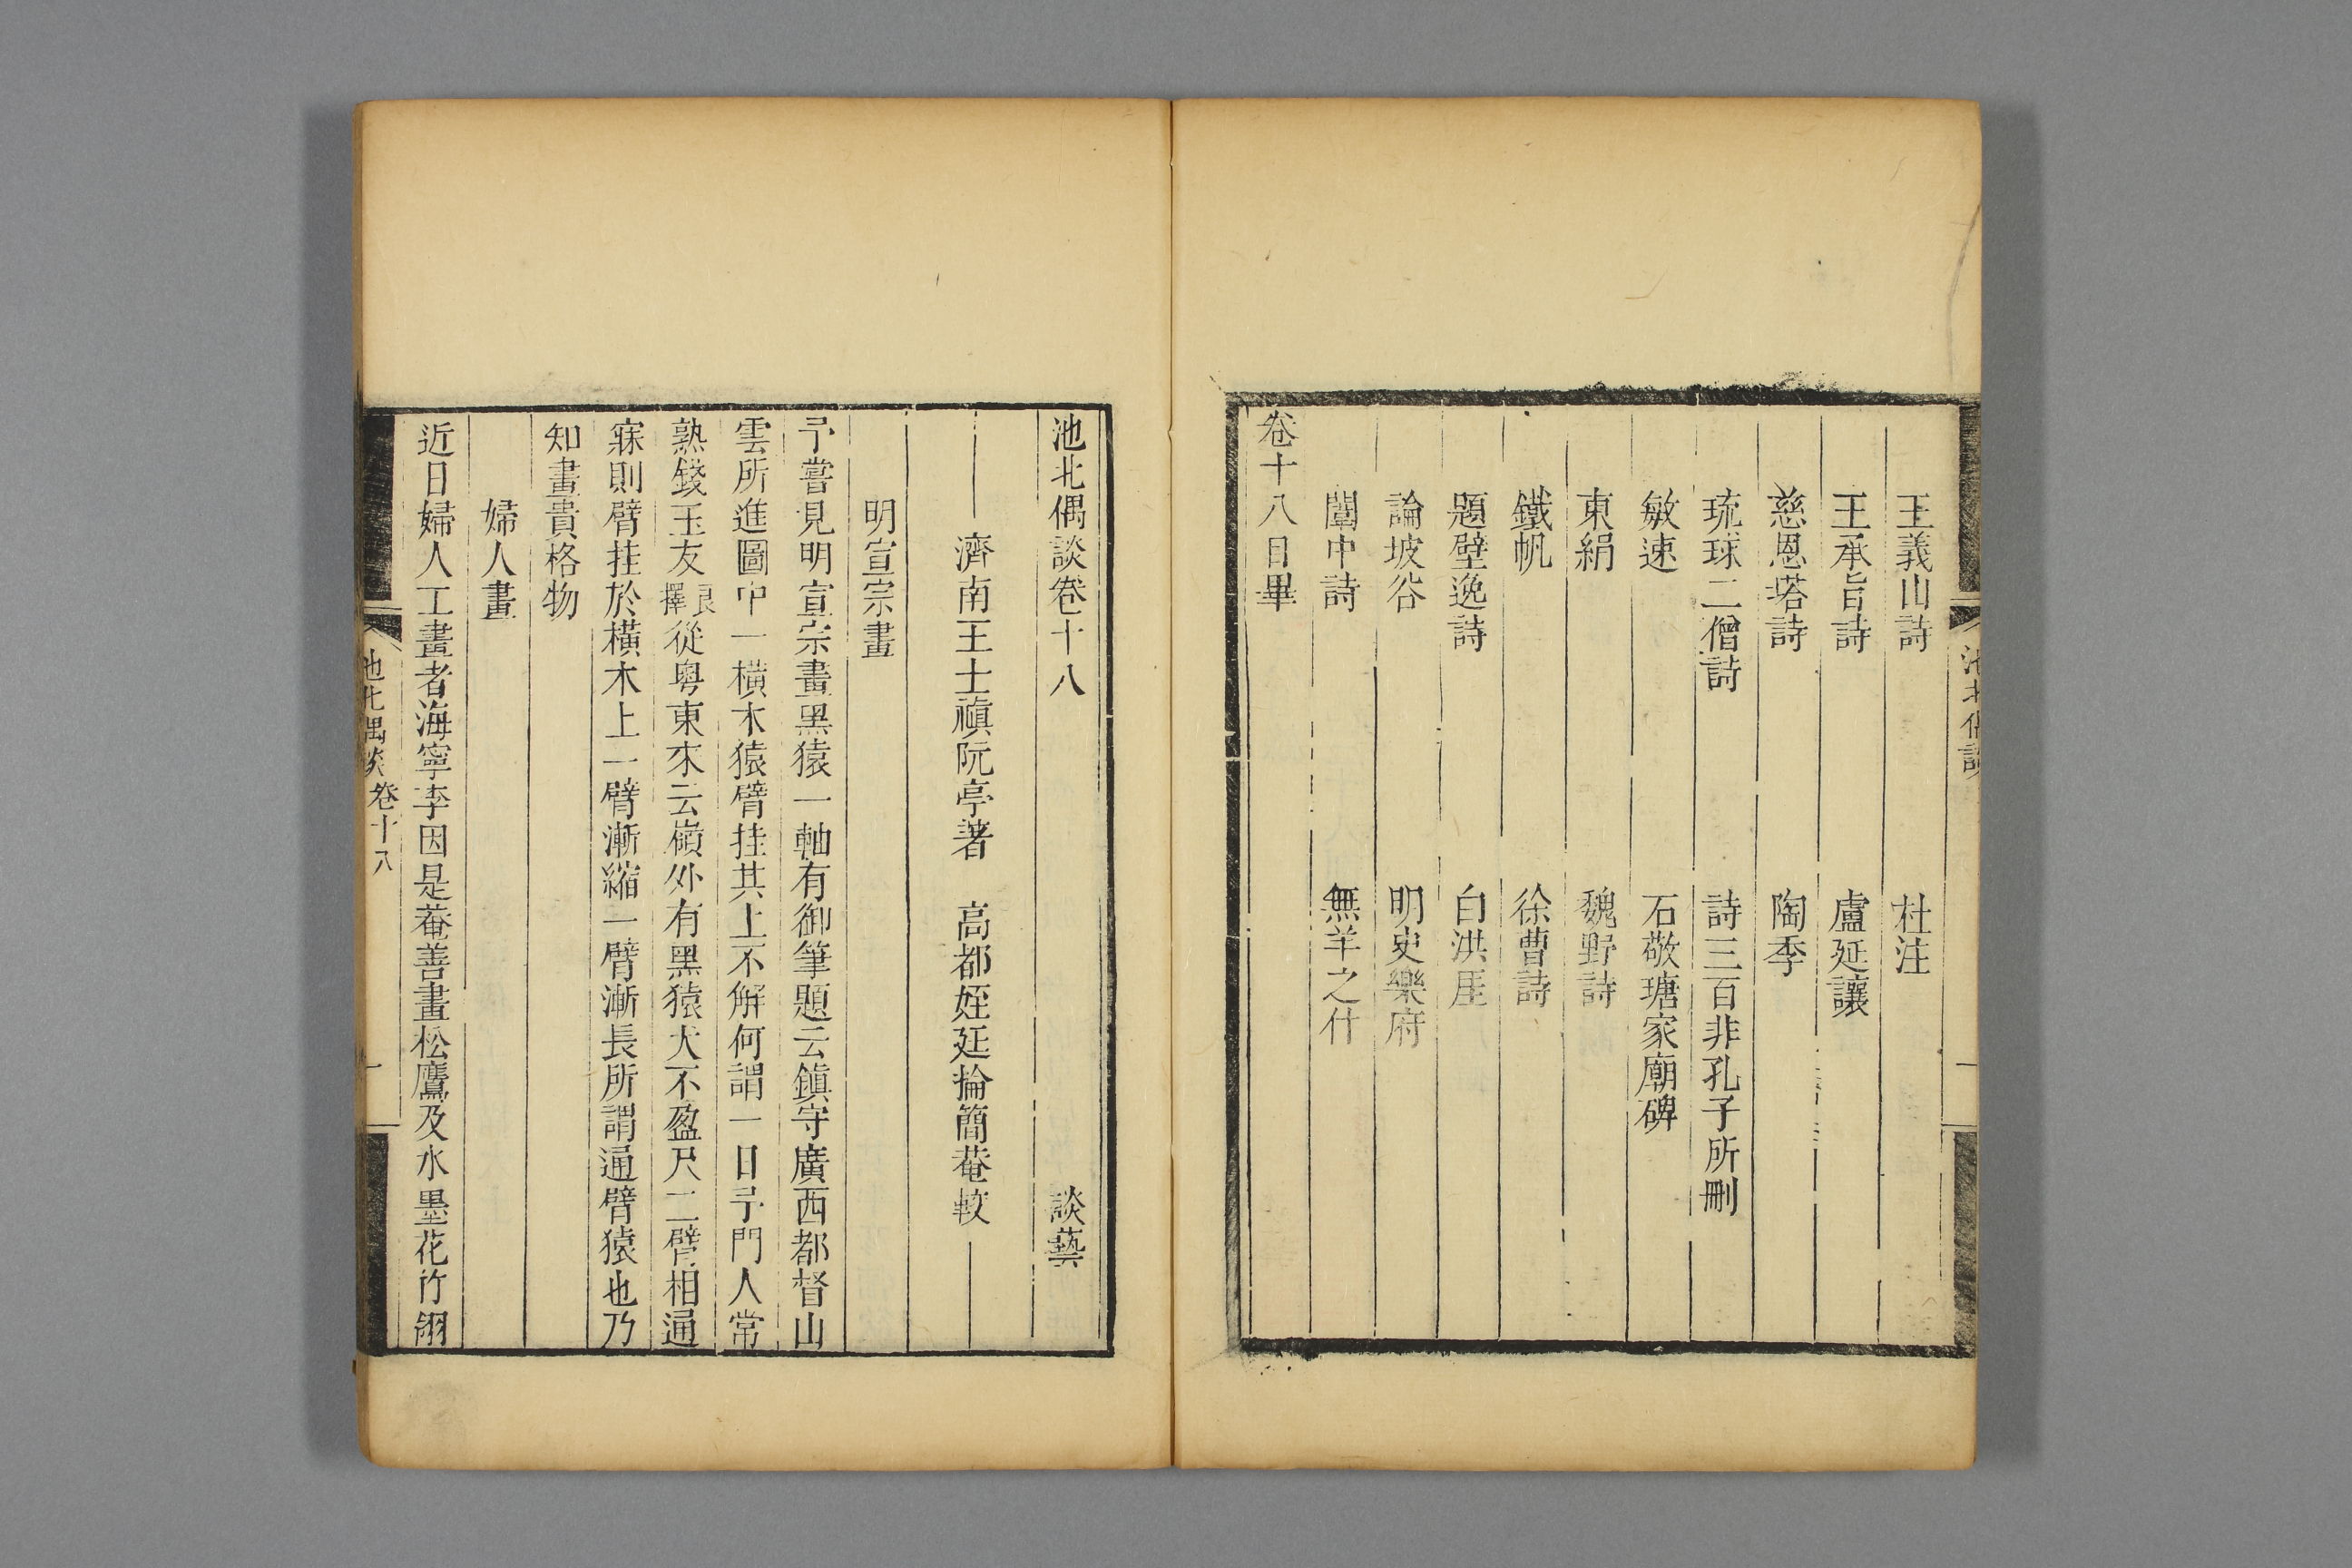 王義山詩　杜注
王承旨詩　盧延讓
慈恩塔詩　陶季
琉球二僧詩　詩三百非孔子所刪
敏速　石敬瑭家廟碑
東絹　魏野詩
鐵帆　徐曹詩
題壁逸詩　白洪厓
論坡谷　明史樂府
闈中詩　無羊之什
卷十八目畢
池北偶談卷十八　談藝
濟南王士禛阮亭著　高都姪廷掄簡菴較
明宣宗畫
予嘗見明宣宗畫黑猿一軸有御筆題云鎮守廣西都督山
雲所進圖中一橫木猿臂挂其上不解何謂一日予門人常
熟錢玉友良擇從粤東來云嶺外有黑猿大不盈尺二臂相通
寐則臂挂於橫木上一臂漸縮一臂漸長所謂通臂猿也乃
知畫貴格物
婦人畫
近日婦人工畫者海寧李因是菴善畫松鷹及水墨花竹翎
池北偶談 卷十八 一